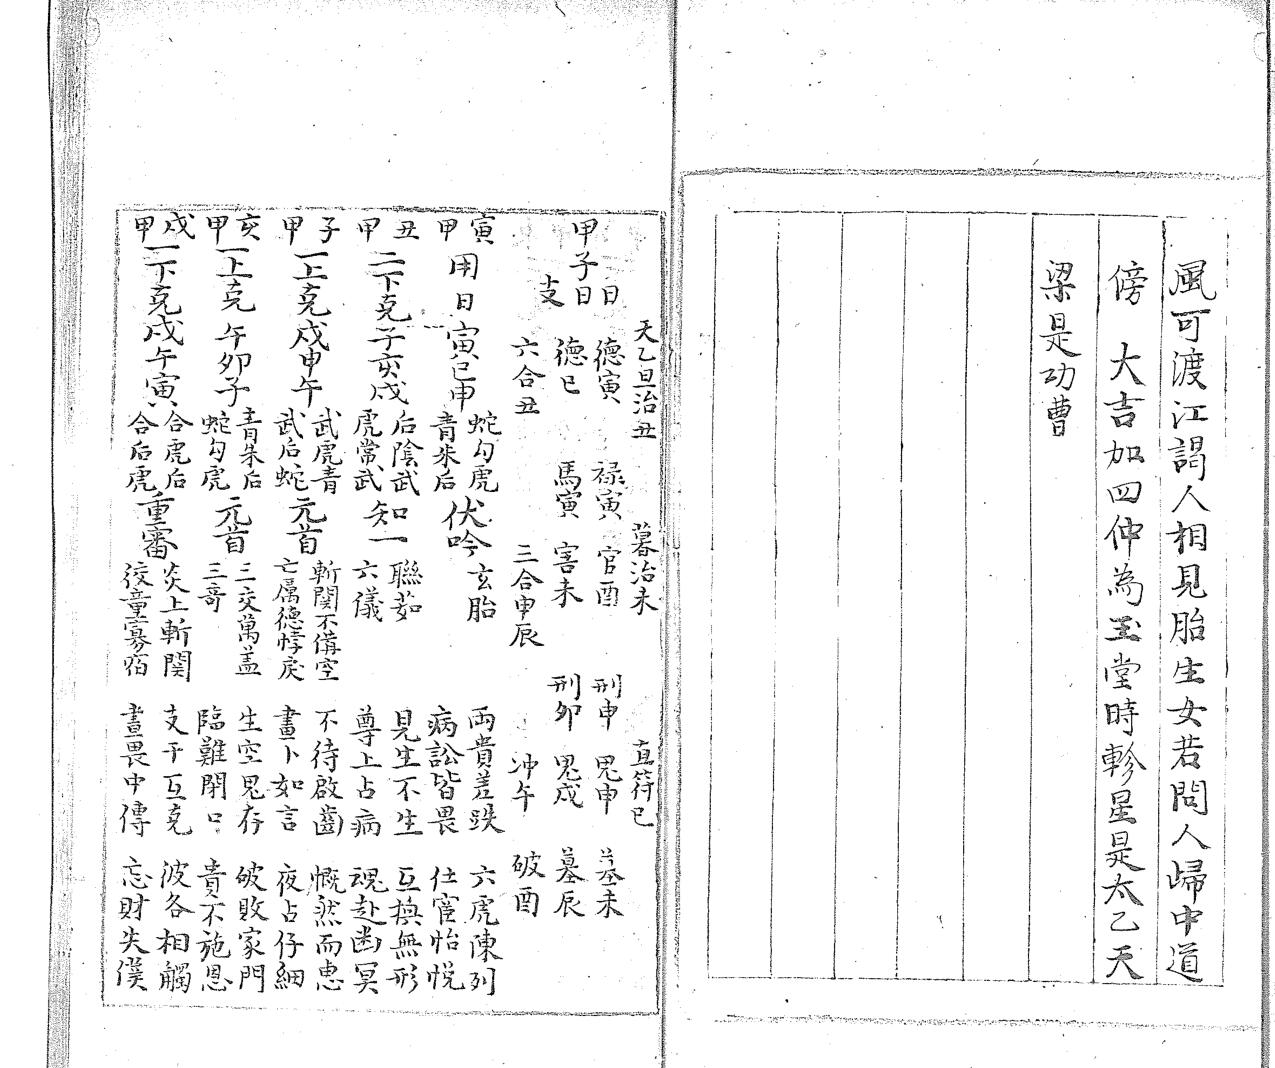 風可渡江謁人相見胎生女若問人歸中道
傍　大吉加四仲為玉堂時軫星是太乙天
梁是功曹
天乙旦治丑　暮治未　直符巳
甲子日
日德寅　祿寅　官酉　刑申　鬼申　墓未
支德巳　馬寅　害未　刑卯　鬼戌　墓辰
六合丑　三合申辰　冲午　破酉
寅甲　用日寅巳申　蛇勾虎　青朱后　伏吟　玄胎　兩貴差跌　六虎陳列
病訟皆畏　仕宦怡悅
丑甲　二下克子亥戌　后陰武　虎常武　知一　聯茹　六儀　見生不生　互換無形
尊上占病　魂赴幽冥
子甲　一上克戌申午　武虎青　武后蛇　元首　斬関不備空　亡厲德悖戾　不待啟齒　慨然而惠
晝卜如言　夜占仔細
亥甲　一上克午卯子　青朱后　蛇勾虎　元首　三交萬盖　三奇　生空鬼存　破敗家門
臨難閉口　責不施恩
戌甲　一下克戌午寅　合虎后　合后虎　重審　炎上斬関　狡童寡宿　支干互克　波各相觸
晝畏中傳　忘財失僕